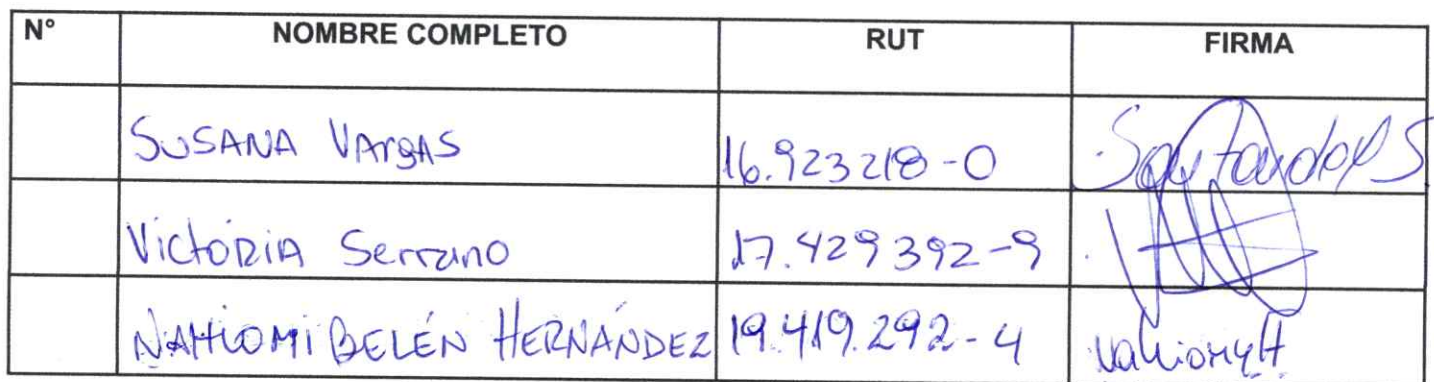 N° NOMBRE COMPLETO RUT FIRMA
SUSANA VARGAS 16.923218-0
VictoRiA Serrano 17.429392-9
NAHIOMI BELÉN HERNÁNDEZ 19.419.292-4